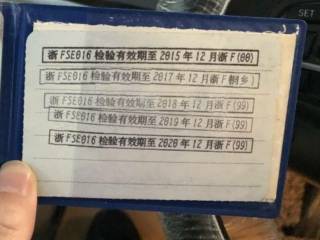 SET
浙FSE016检验有效期至2015年12月浙F(00)
浙FSE016检验有效期至2017年12月浙F桐乡)
浙FSE016检验有效期至2018年12月浙F(99)
浙FSE016检验有效期至2019年12月浙F(99)
浙FSE016检验有效期至2020年12月浙F(99)